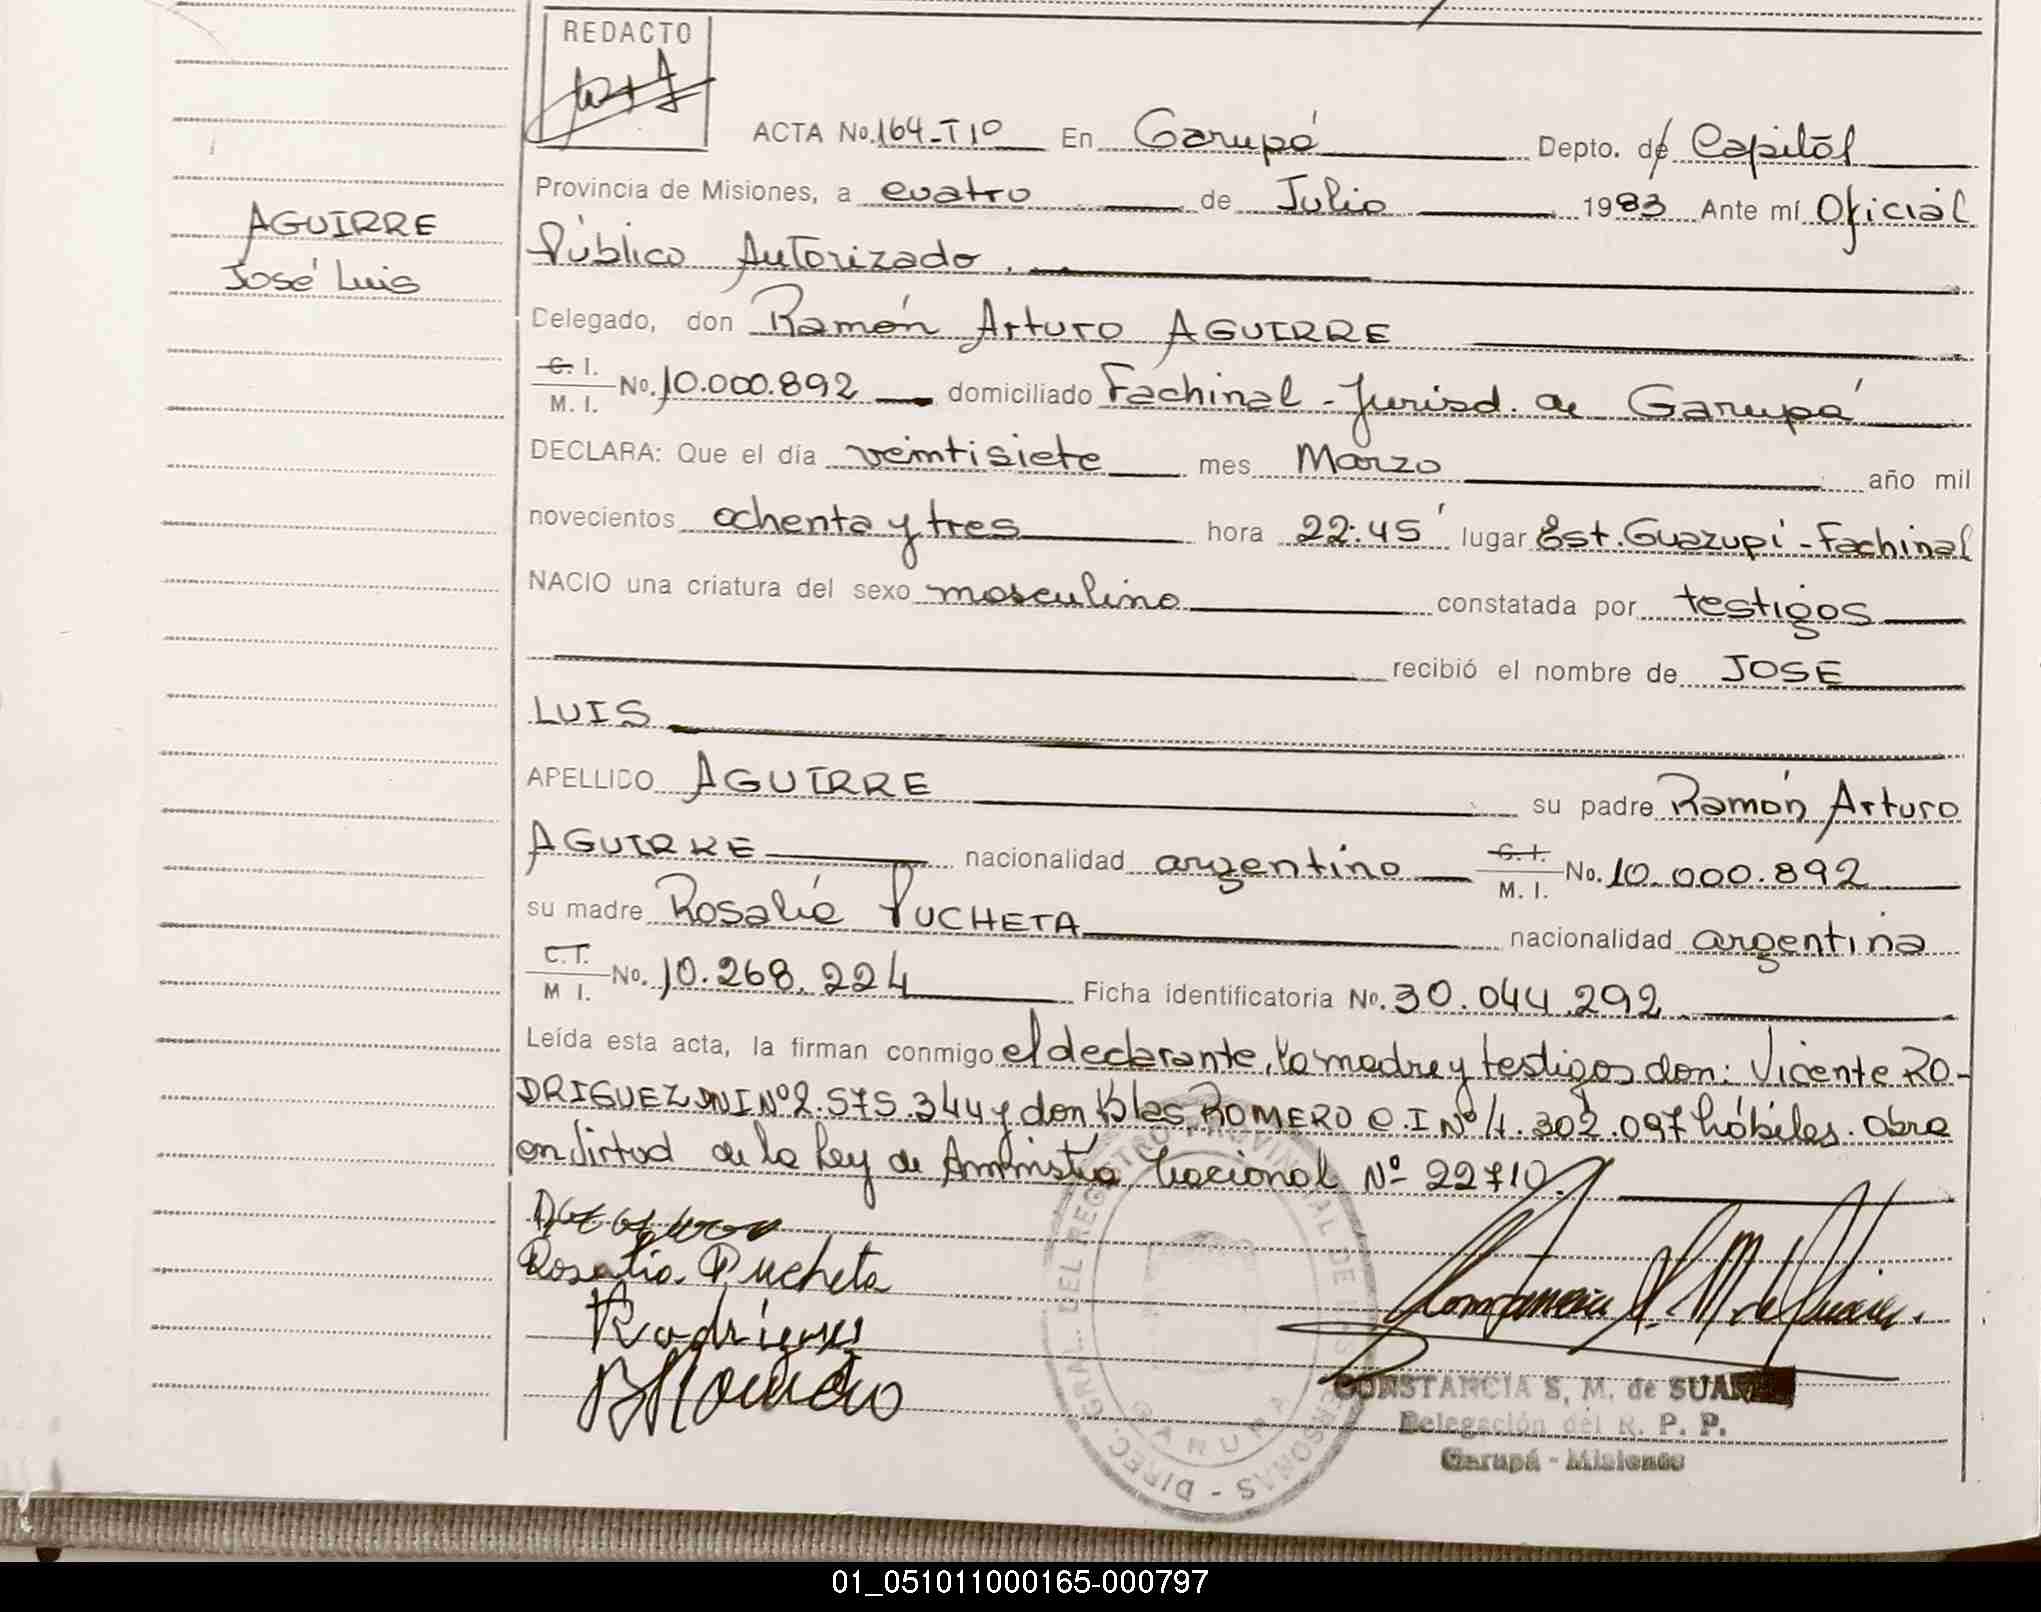 REDACTO
ACTA No. 164-T10 En Garupá Depto. de Capital
Provincia de Misiones, a cuatro de Julio 1983 Ante mí Oficial
Público Autorizado.
AGUIRRE
José Luis
Delegado, don Ramón Arturo AGUIRRE
C. I.
M. I. No. 10.000.892 domiciliado Fachinal - Jurisd. de Garupá
DECLARA: Que el día veintisiete mes Marzo año mil
novecientos ochenta y tres hora 22:45' lugar Est. Guazupi - Fachinal
NACIO una criatura del sexo masculino constatada por testigos
recibió el nombre de JOSE
LUIS
APELLIDO AGUIRRE su padre Ramón Arturo
AGUIRRE nacionalidad argentino C. I. M. I. No. 10.000.892
su madre Rosalía PUCHETA nacionalidad argentina
C. I.
M I. No. 10.268.224 Ficha identificatoria No. 30.044.292
Leída esta acta, la firman conmigo el declarante, la madre y testigos don: Vicente RO-
DRIGUEZ DNI Nº 2.575.344 y don Blas ROMERO C.I Nº 4.302.097 hábiles. Obra
en virtud de la Ley de Amnistía Nacional Nº 22710.
Rosalia Pucheta
Rodrigues
B Romero
DIREC. GRAL. DEL REGISTRO PROVINCIAL DE LAS PERSONAS -
GARUPA
CONSTANCIA S, M. de SUAREZ
Delegación del R. P. P.
Garupá - Misiones
01_051011000165-000797